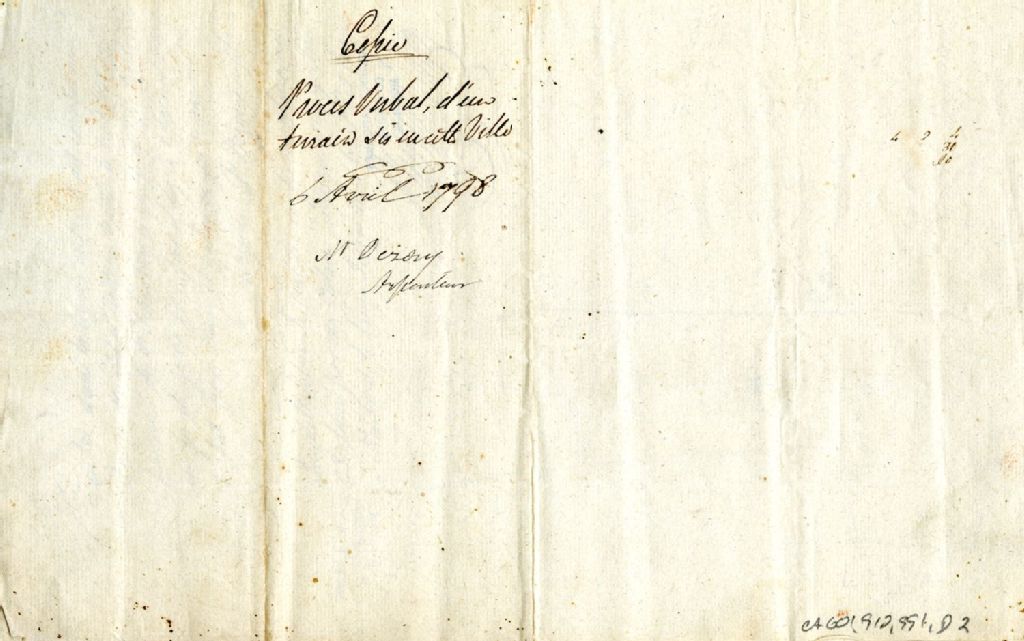 Copie
Procès Verbal, d'un
terrain sis en cette Ville
6 Avril 1798
Mr Dezery
Arpenteur
4 2 4
30
CA601,S12,SS1,D2